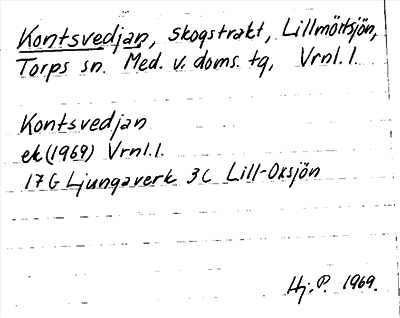 Kontsvedjan, skogstrakt, Lillmörtsjön,
Torps sn. Med. v. doms. tg, Vrnl. l.
Kontsvedjan
ek (1969) Vrnl. l.
17G Ljungaverk 3c Lill-Oxsjön
Hj. P. 1969.